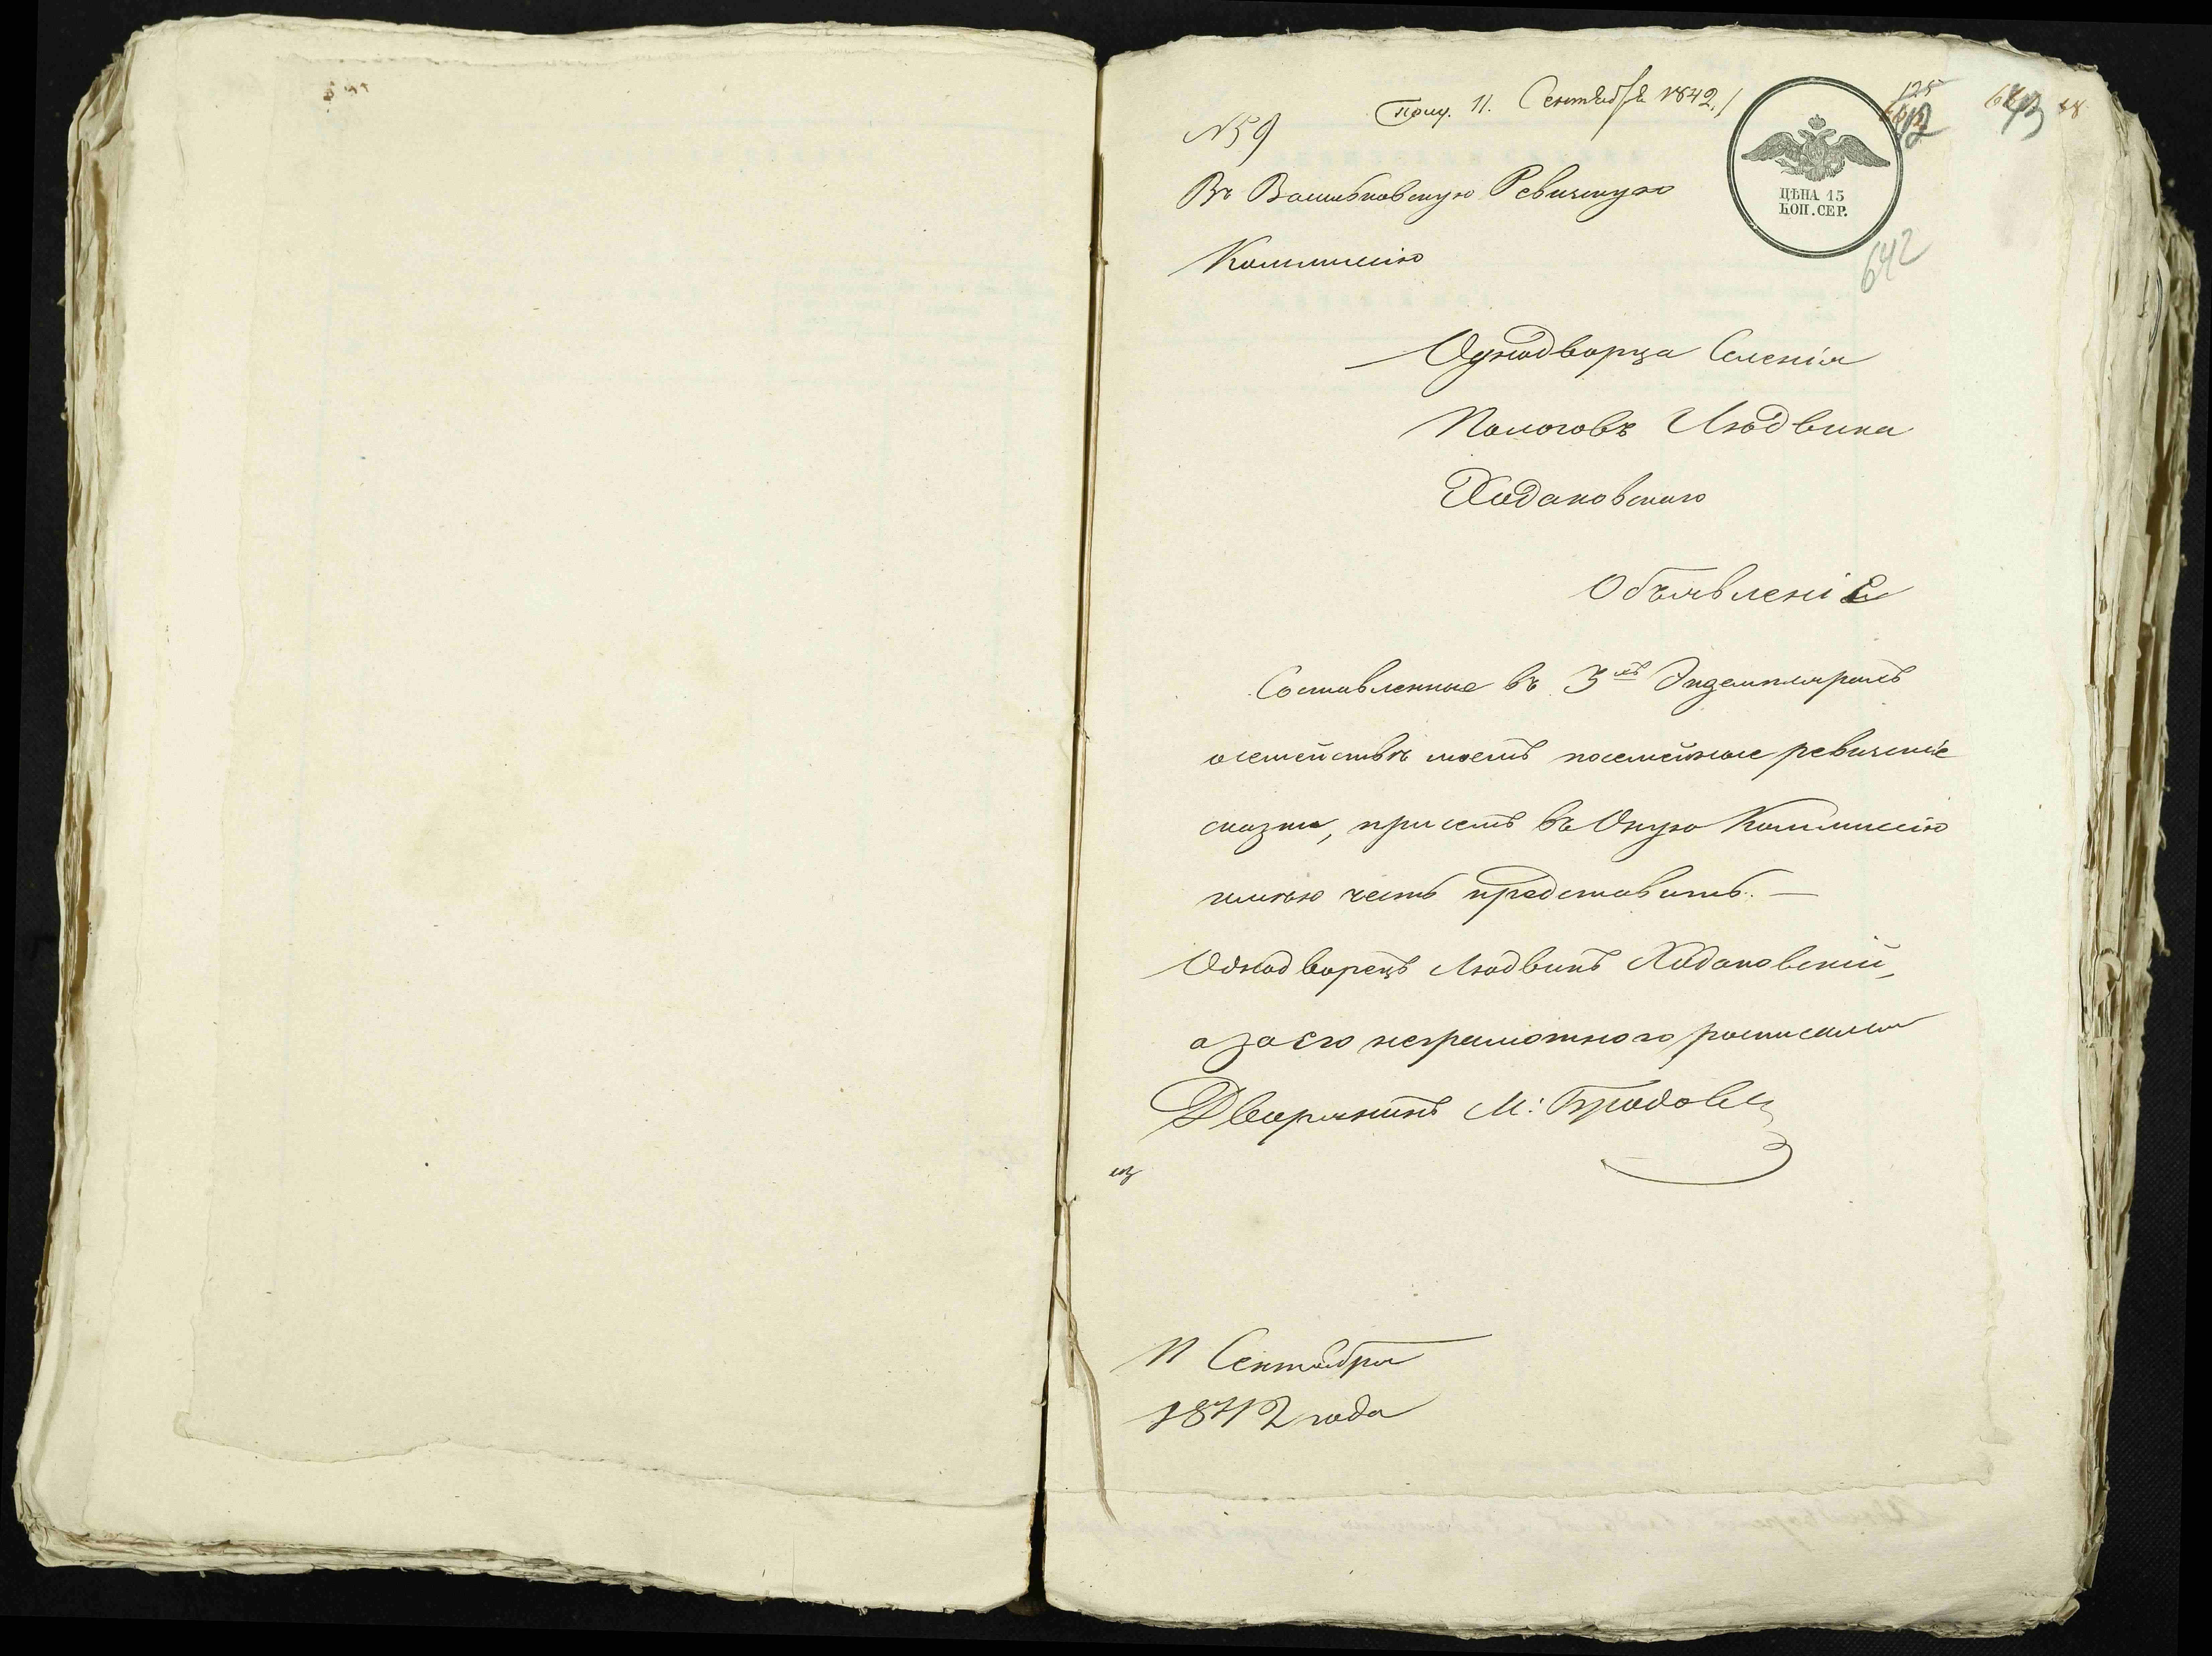 Пол. 11. Сентября 1842.
125
642
643
№59
ЦѢНА 15
КОП. СЕР.
Въ Васильковскую Ревизскую
Коммиссію
642
Однодворца Селенія
Пологовъ Людвика
Ходаковскаго
Объявленіе
Составленные въ 3хъ Экземплярахъ
о семействѣ моемъ посемейные ревизскіе
сказки, при семъ въ Оную Коммиссію
имѣю честь представить. —
Однодворецъ Людвикъ Ходаковскій,
а за его неграмотного росписался
Дворянинъ М: Бродовс
11 Сентября
1842 года